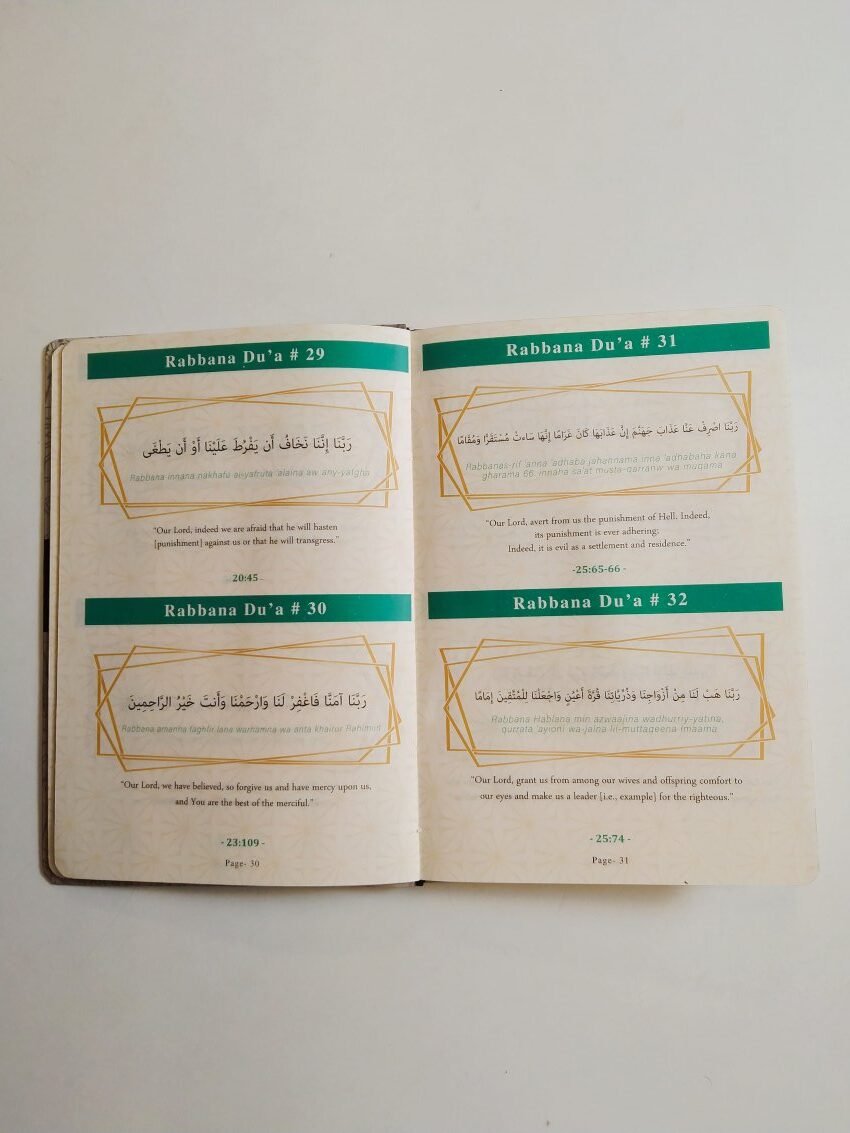 Rabbana Du’a # 29
رَبَّنَا إِنَّنَا نَخَافُ أَن يَفْرُطَ عَلَيْنَا أَوْ أَن يَطْغَى
Rabbana innana nakhafu ai-yafruta 'alaina aw any-yatgha
“Our Lord, indeed we are afraid that he will hasten
[punishment] against us or that he will transgress.”
20:45
Rabbana Du’a # 30
رَبَّنَا آمَنَّا فَاغْفِرْ لَنَا وَارْحَمْنَا وَأَنتَ خَيْرُ الرَّاحِمِينَ
Rabbana amanna faghfir lana warhamna wa anta khairur Rahimun
“Our Lord, we have believed, so forgive us and have mercy upon us,
and You are the best of the merciful.”
- 23:109 -
Page- 30
Rabbana Du’a # 31
رَبَّنَا اصْرِفْ عَنَّا عَذَابَ جَهَنَّمَ إِنَّ عَذَابَهَا كَانَ غَرَامًا إِنَّهَا سَاءتْ مُسْتَقَرًّا وَمُقَامًا
Rabbanas-rif 'anna 'adhaba jahannama inna 'adhabaha kana
gharama 66. innaha sa'at musta-qarranw wa muqama
“Our Lord, avert from us the punishment of Hell. Indeed,
its punishment is ever adhering;
Indeed, it is evil as a settlement and residence.”
-25:65-66 -
Rabbana Du’a # 32
رَبَّنَا هَبْ لَنَا مِنْ أَزْوَاجِنَا وَذُرِّيَّاتِنَا قُرَّةَ أَعْيُنٍ وَاجْعَلْنَا لِلْمُتَّقِينَ إِمَامًا
Rabbana Hablana min azwaajina wadhurriy-yatina,
qurrata 'ayioni wa-jalna lil-muttaqeena Imaama
“Our Lord, grant us from among our wives and offspring comfort to
our eyes and make us a leader [i.e., example] for the righteous.”
- 25:74 -
Page- 31